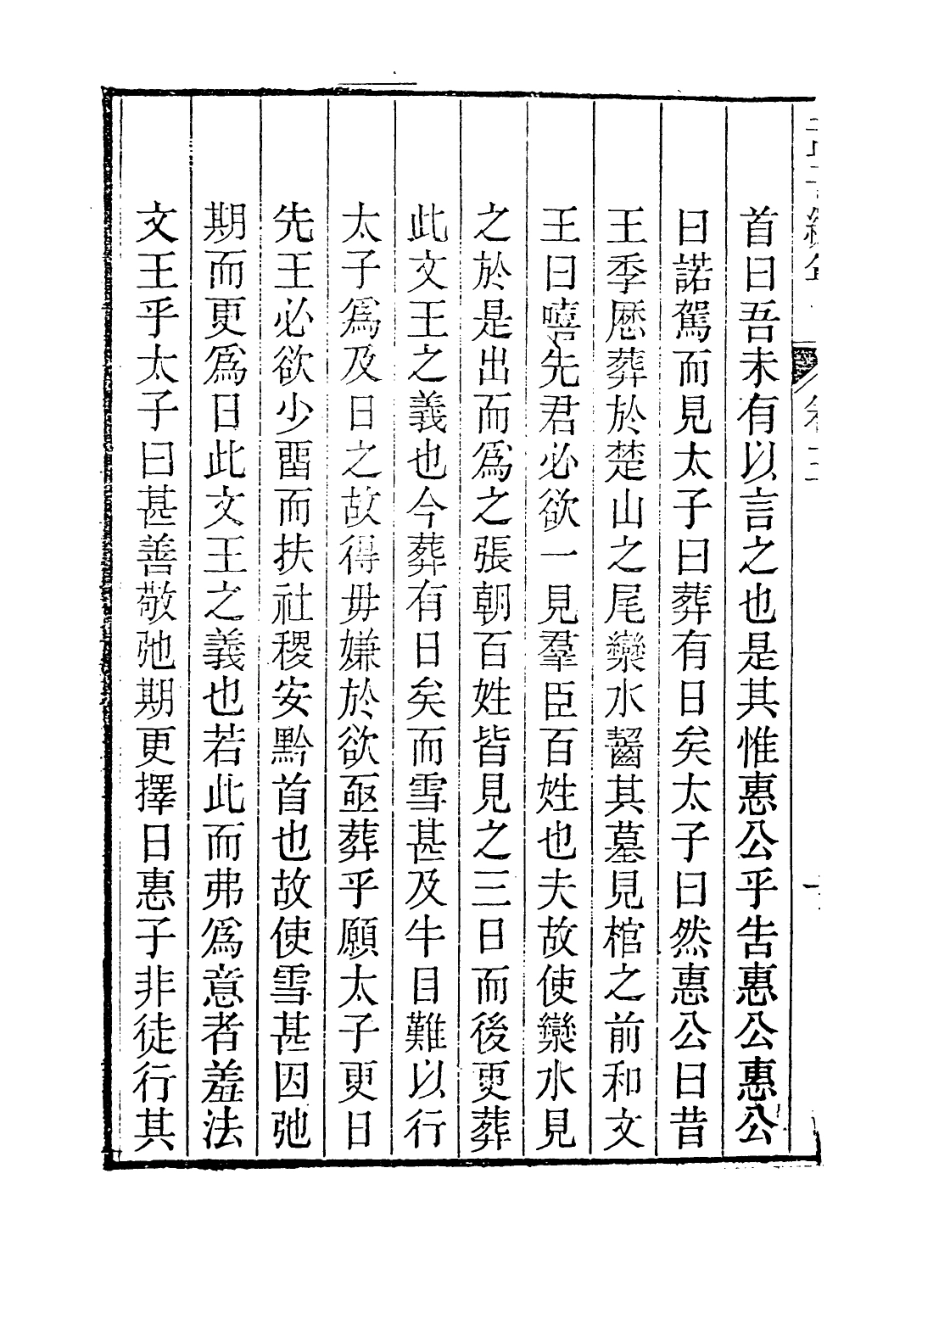 首曰吾未有以言之也是其惟惠公乎告惠公惠公
曰諾駕而見太子曰葬有日矣太子曰然惠公曰昔
王季歷葬於楚山之尾欒水齧其墓見棺之前和文
王曰嘻先君必欲一見羣臣百姓也夫故使欒水見
之於是出而爲之張朝百姓皆見之三日而後更葬
此文王之義也今葬有日矣而雪甚及牛目難以行
太子爲及日之故得毋嫌於欲亟葬乎願太子更日
先王必欲少畱而扶社稷安黔首也故使雪甚因弛
期而更爲日此文王之義也若此而弗爲意者羞法
文王乎太子曰甚善敬弛期更擇日惠子非徒行其